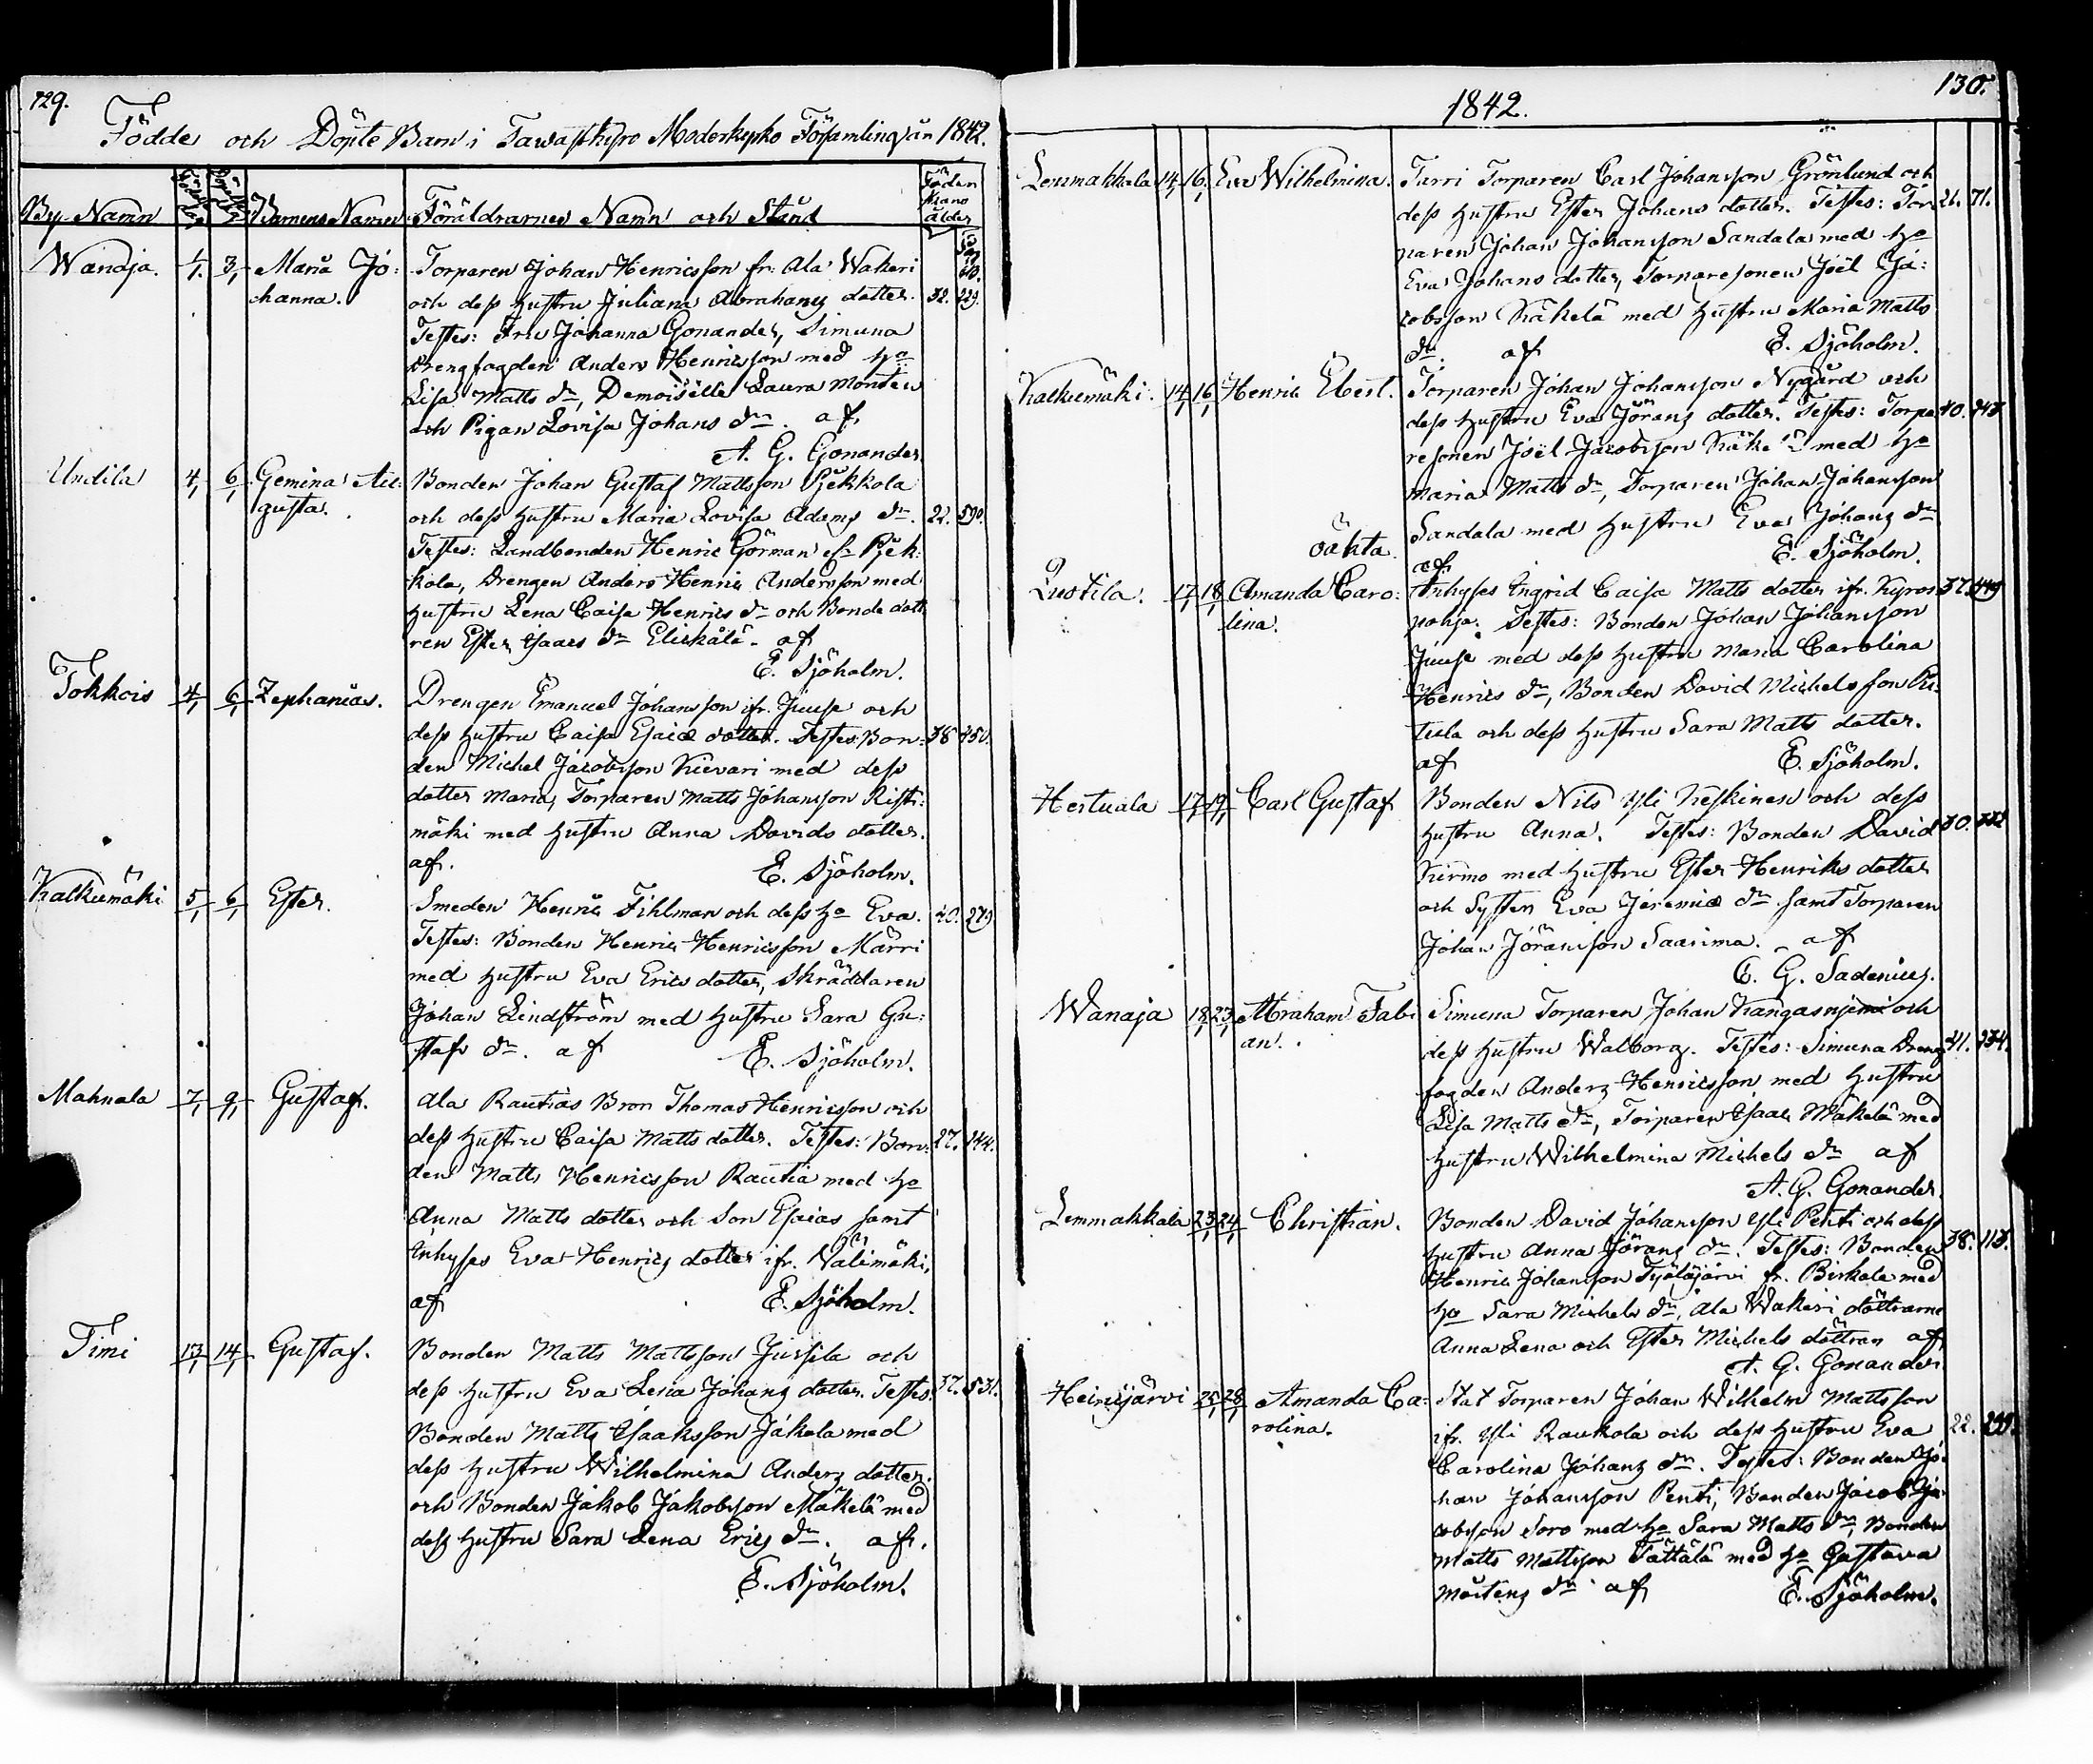 129.
Födde och Döpte Barn i Tawastkyro Moderkyrko Församling år 1842.
By Namn Barnens Namn Föräldrarnes Namn och Stånd
Wanaja. 1/1. 3, Maria Jo:
hanna.
Torparen Johan Henricsson fr: Ala Wakeri
och dess hustru Juliana Abrahams dotter. 32. 229.
Testes: Fru Johanna Gonander, Simuna
Drengfogden Anders Henricsson med ho
Lisa Matts dr, Demoiselle Laura Montin
och Pigan Lovisa Johans dr. af
A. G. Gonander.
Undila 4, 6, Gemina Au:
gusta.
Bonden Johan Gustaf Mattsson Pjekkola
och dess hustru Maria Lovisa Adams dr. 22. 590.
Testes: Landbonden Henric Görman Pjek:
kola, Drengen Anders Henric Andersson med
hustru Lena Caisa Henrics dr och Bonde dott
ren Ester Isaacs dr Eliskälä. af
E. Sjöholm.
Tokkois 4, 6, Zephanias.
Drengen Emanuel Johansson ifr. Juuse och
dess hustru Caisa Esaiæ dotter. Testes: Bon: 38 450.
den Michel Jacobsson Kievari med dess
dotter Maria, Torparen Matts Johansson Risti:
mäki med hustru Anna Davids dotter.
af. E. Sjöholm.
Kalkumäki 5, 6, Ester.
Smeden Henric Fihlman och dess ho Eva. 40. 279
Testes: Bonden Henric Henricsson Märri
med hustru Eva Erics dotter, Skräddaren
Johan Lindström med hustru Sara Gu:
stafs dr. af E. Sjöholm.
Mahnala 7, 9, Gustaf.
Ala Rautias Bron Thomas Henricsson och
dess hustru Caisa Matts dotter. Testes: Bon: 27. 144.
den Matts Henricsson Rautia med ho
Anna Matts dotter och Son Esaias samt
Inhyses Eva Henrics dotter ifr. Välimäki,
af E. Sjöholm.
Timi 13, 14, Gustaf.
Bonden Matts Mattsson Jussila och
dess hustru Eva Lena Johans dotter. Testes: 37. 531.
Bonden Matts Isaaksson Jakola med
dess hustru Wilhelmina Anders dotter
och Bonden Jakob Jakobsson Mäkelä med
dess hustru Sara Lena Erics dr. af.
E. Sjöholm.
130.
1842.
Lemmakkala 14, 16, Eva Wilhelmina.
Tarri Torparen Carl Johansson Grönlund och
dess hustru Ester Johans dotter. Testes: Tor: 26. 71.
paren Johan Johansson Sandala med ho
Eva Johans dotter, Torparesonen Joël Ja:
cobsson Käkelä med hustru Maria Matts
dr. af E. Sjöholm.
Kalkumäki. 14, 16, Henric Ebert.
Torparen Johan Johansson Nygård och
dess hustru Eva Jörans dotter. Testes: Torpa 40.
resonen Joël Jacobsson med ho
Maria Matts dr, Torparen Johan Johansson
Sandala med hustru Eva Johans dr
af. E. Sjöholm.
oäkta.
Lustila. 17, 18, Amanda Caro:
lina.
Inhyses Ingrid Caisa Matts dotter ifr. Kyros 37.
pohja. Testes: Bonden Johan Johansson
Juuse med dess hustru Maria Carolina
Henrics dr, Bonden David Michelsson
tula och dess hustru Sara Matts dotter.
af E. Sjöholm.
Hertuala 17, 19, Carl Gustaf
Bonden Nils Yli Keskinen och dess
hustru Anna. Testes: Bonden David 30.
Kirmo med hustru Ester Henriks dotter
och Systern Eva Jeremiæ dr samt Torparen
Johan Jöransson Saarima. af
C. G. Sadenius.
Wanaja 18, 23, Abraham Fabi
an.
Simuna Torparen Johan Kangasnjemi och
dess hustru Walborg. Testes: Simuna Dreng 41.
fogden Anders Henricsson med hustru
Lisa Matts dr, Torparen Isaac Mäkelä med
hustru Wilhelmina Michels dr af
A. G. Gonander.
Lemmakkala 23, 24, Christian.
Bonden David Johansson Yli Penti och dess
hustru Anna Jörans dr. Testes: Bonden 38. 113.
Henric Johansson Tyålåjärvi fr. Birkala med
ho Sara Michels dr, Ala Wakeri döttrarne
Anna Lena och Ester Michels döttrar af
A. G. Gonander
Heinijärvi 25, 28, Amanda Ca:
rolina.
Stat Torparen Johan Wilhelm Mattsson
ifr. Yli Raukola och dess hustru Eva 22. 299.
Carolina Johans dr. Testes: Bonden Jo
han Johansson Penti, Bonden Jacob Ja
cobsson Soro med ho Sara Matts dr, Bonden
Matts Mattsson Tättälä med ho Gustava
Mårtens dr af E. Sjöholm.